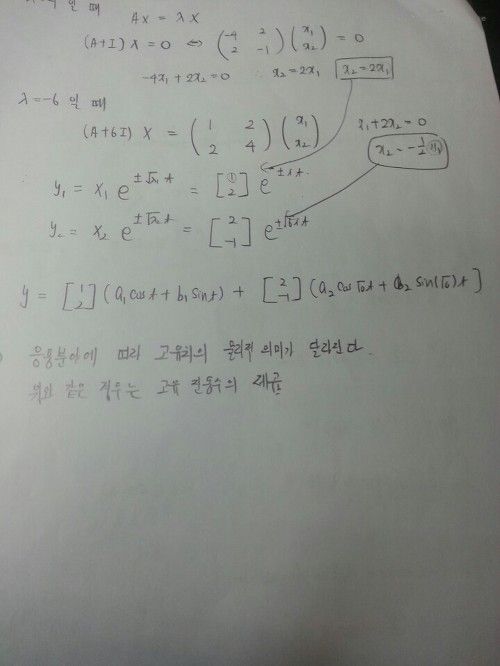 일 때 Ax = λx
(A+I)X = 0 ⇔ (-4 2; 2 -1)(x₁; x₂) = 0
-4x₁ + 2x₂ = 0 ∴ x₂ = 2x₁ x₂ = 2x₁
λ = -6 일 때
(A+6I) X = (1 2; 2 4)(x₁; x₂) x₁ + 2x₂ = 0
x₂ = -½x₁
y₁ = x₁ e^±√λ₁ t = [1; 2] e^±it
y₂ = x₂ e^±√λ₂ t = [2; -1] e^±√6 it
y = [1; 2] (a₁ cos t + b₁ sin t) + [2; -1] (a₂ cos √6 t + b₂ sin(√6) t]
응용분야에 따라 고유치의 물리적 의미가 달라진다.
위와 같은 경우는 고유 진동수의 제곱